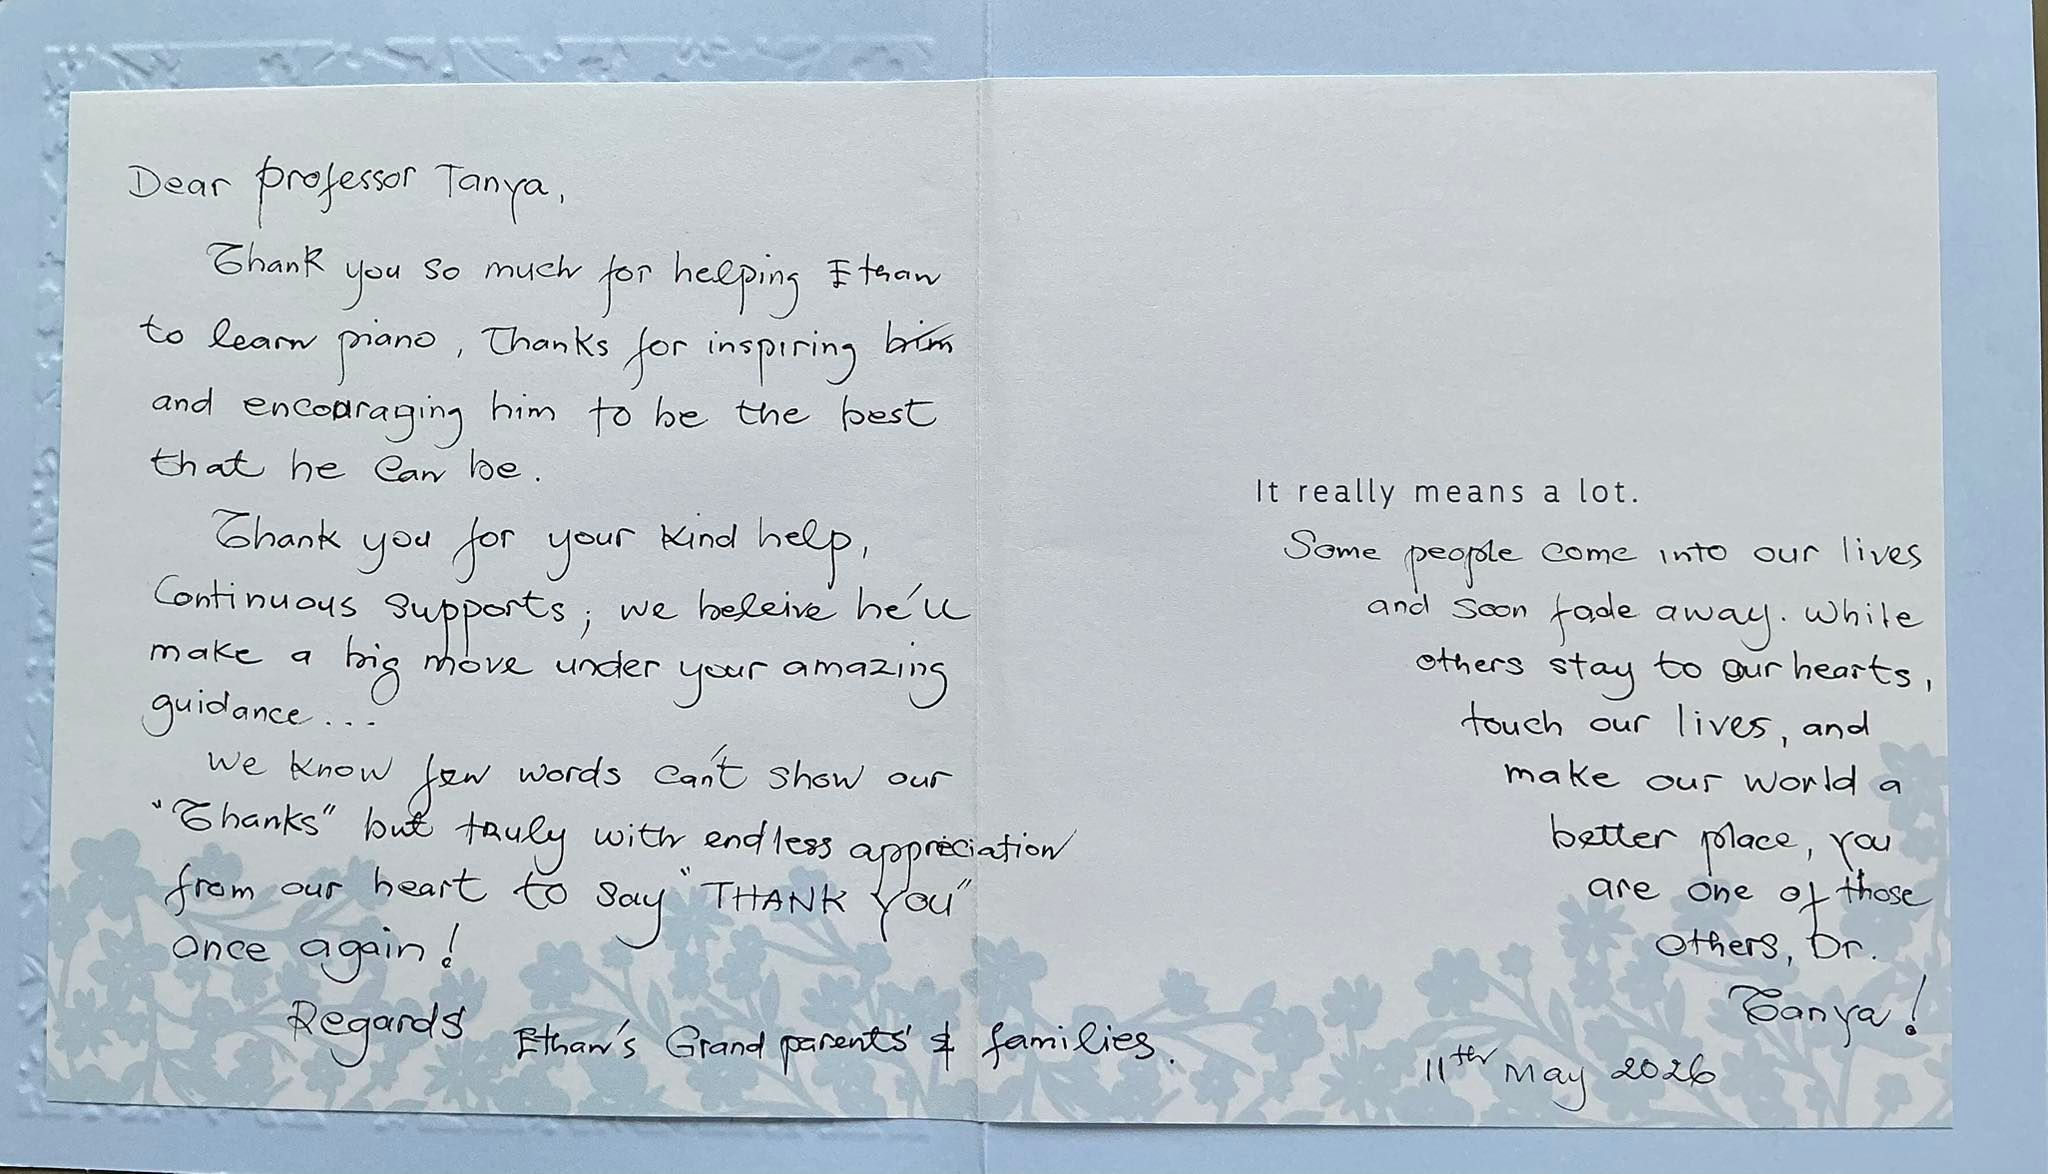 Dear professor Tanya,
Thank you so much for helping Ethan
to learn piano, Thanks for inspiring him
and encouraging him to be the best
that he can be.
Thank you for your kind help,
Continuous supports; we beleive he'll
make a big move under your amazing
guidance...
We know few words can't show our
"Thanks" but truly with endless appreciation
from our heart to say "THANK YOU"
once again!
Regards
Ethan's Grand parents' & families.
It really means a lot.
Some people come into our lives
and soon fade away. While
others stay to our hearts,
touch our lives, and
make our world a
better place, you
are one of those
others, Dr.
Tanya!
11th May 2026